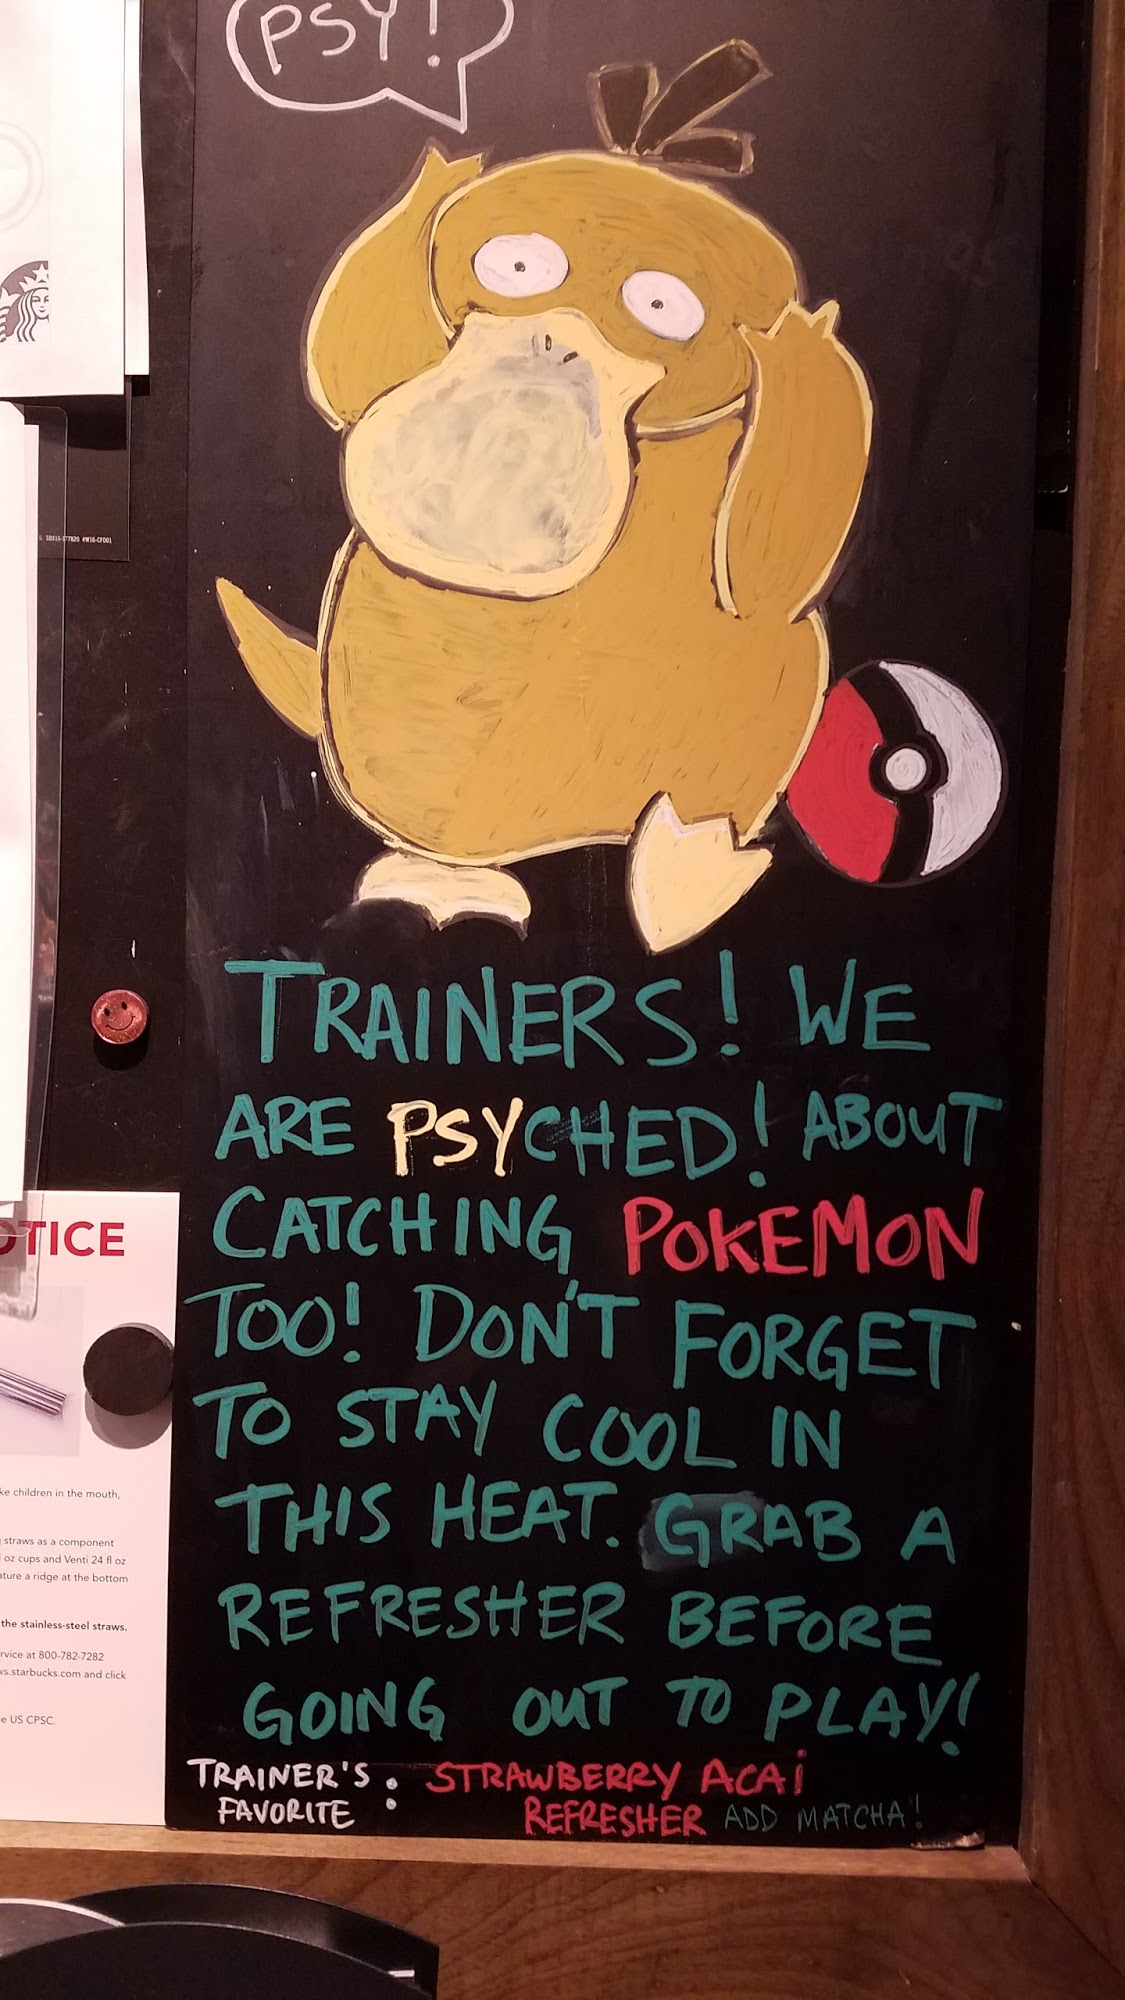 PSY!
TRAINERS! WE
ARE PSYCHED! ABOUT
CATCHING POKEMON
TOO! DON'T FORGET
TO STAY COOL IN
THIS HEAT. GRAB A
REFRESHER BEFORE
GOING OUT TO PLAY!
TRAINER'S FAVORITE : STRAWBERRY ACAI
REFRESHER ADD MATCHA!
#W16-CF001
OTICE
ke children in the mouth,
straws as a component
oz cups and Venti 24 fl oz
ature a ridge at the bottom
the stainless-steel straws.
rvice at 800-782-7282
ws.starbucks.com and click
e US CPSC.